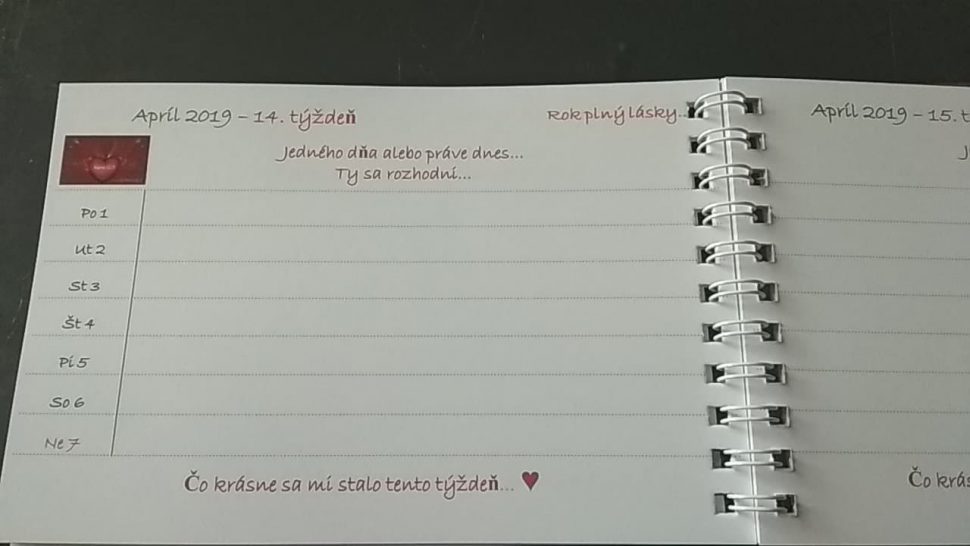 Apríl 2019 – 14. týždeň
Rok plný lásky...
Jedného dňa alebo práve dnes...
Ty sa rozhodni...
Po 1
Ut 2
St 3
Št 4
Pi 5
So 6
Ne 7
Čo krásne sa mi stalo tento týždeň...
Apríl 2019 – 15. t
J
Čo krás